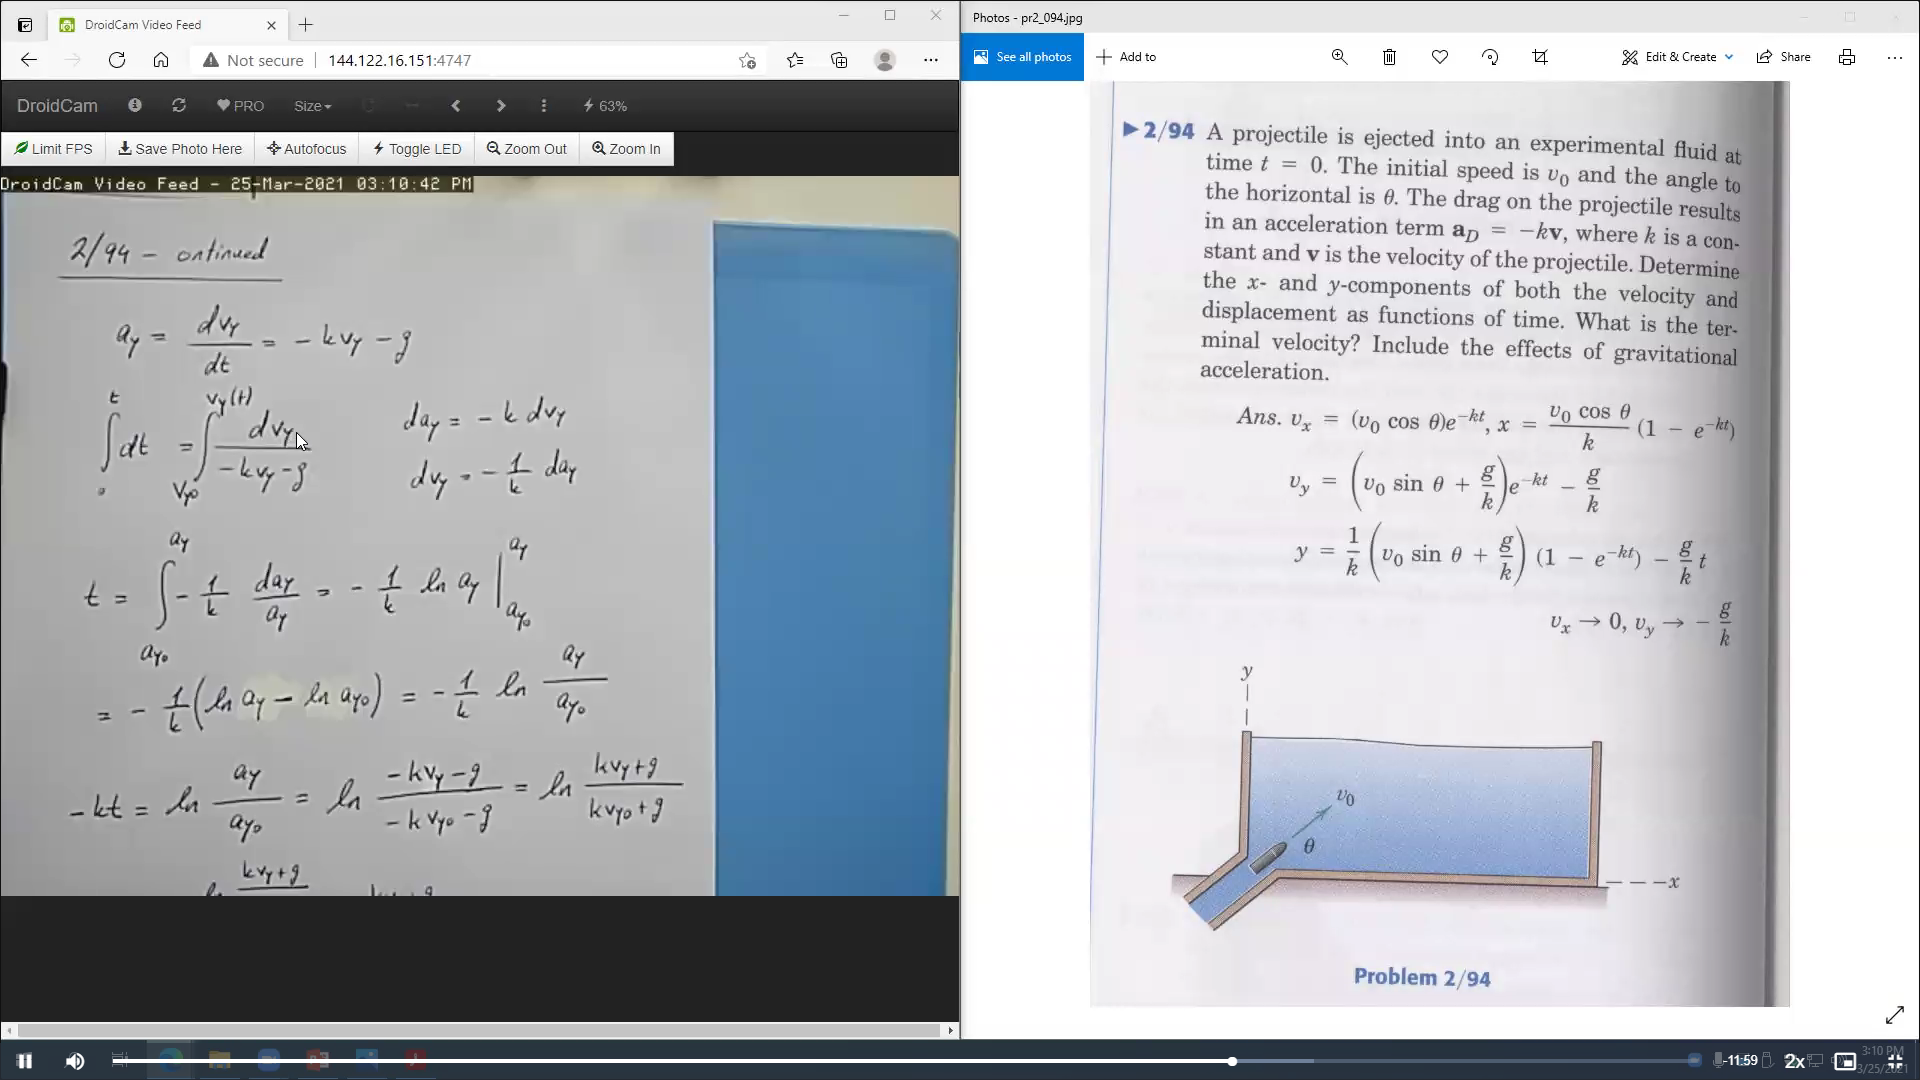 DroidCam Video Feed
Not secure | 144.122.16.151:4747
DroidCam PRO Size 63%
Limit FPS Save Photo Here Autofocus Toggle LED Zoom Out Zoom In
DroidCam Video Feed - 25-Mar-2021 03:10:42 PM
2/94 - ontinued
a_y = dv_y/dt = - k v_y - g
∫_0^t dt = ∫_{v_y0}^{v_y(t)} dv_y/(-k v_y - g)
da_y = - k dv_y
dv_y = - 1/k da_y
t = ∫_{a_y0}^{a_y} - 1/k da_y/a_y = - 1/k ln a_y |_{a_y0}^{a_y}
= - 1/k (ln a_y - ln a_y0) = - 1/k ln a_y/a_y0
- kt = ln a_y/a_y0 = ln (-k v_y - g)/(-k v_y0 - g) = ln (k v_y + g)/(k v_y0 + g)
k v_y + g
Photos - pr2_094.jpg
See all photos Add to Edit & Create Share
2/94 A projectile is ejected into an experimental fluid at
time t = 0. The initial speed is v₀ and the angle to
the horizontal is θ. The drag on the projectile results
in an acceleration term a_D = −kv, where k is a con-
stant and v is the velocity of the projectile. Determine
the x- and y-components of both the velocity and
displacement as functions of time. What is the ter-
minal velocity? Include the effects of gravitational
acceleration.
Ans. v_x = (v₀ cos θ)e^{−kt}, x = (v₀ cos θ)/k (1 − e^{−kt})
v_y = (v₀ sin θ + g/k)e^{−kt} − g/k
y = 1/k (v₀ sin θ + g/k) (1 − e^{−kt}) − g/k t
v_x → 0, v_y → − g/k
y
v₀
θ
x
Problem 2/94
-11:59 2x
3:10 PM
3/25/2021